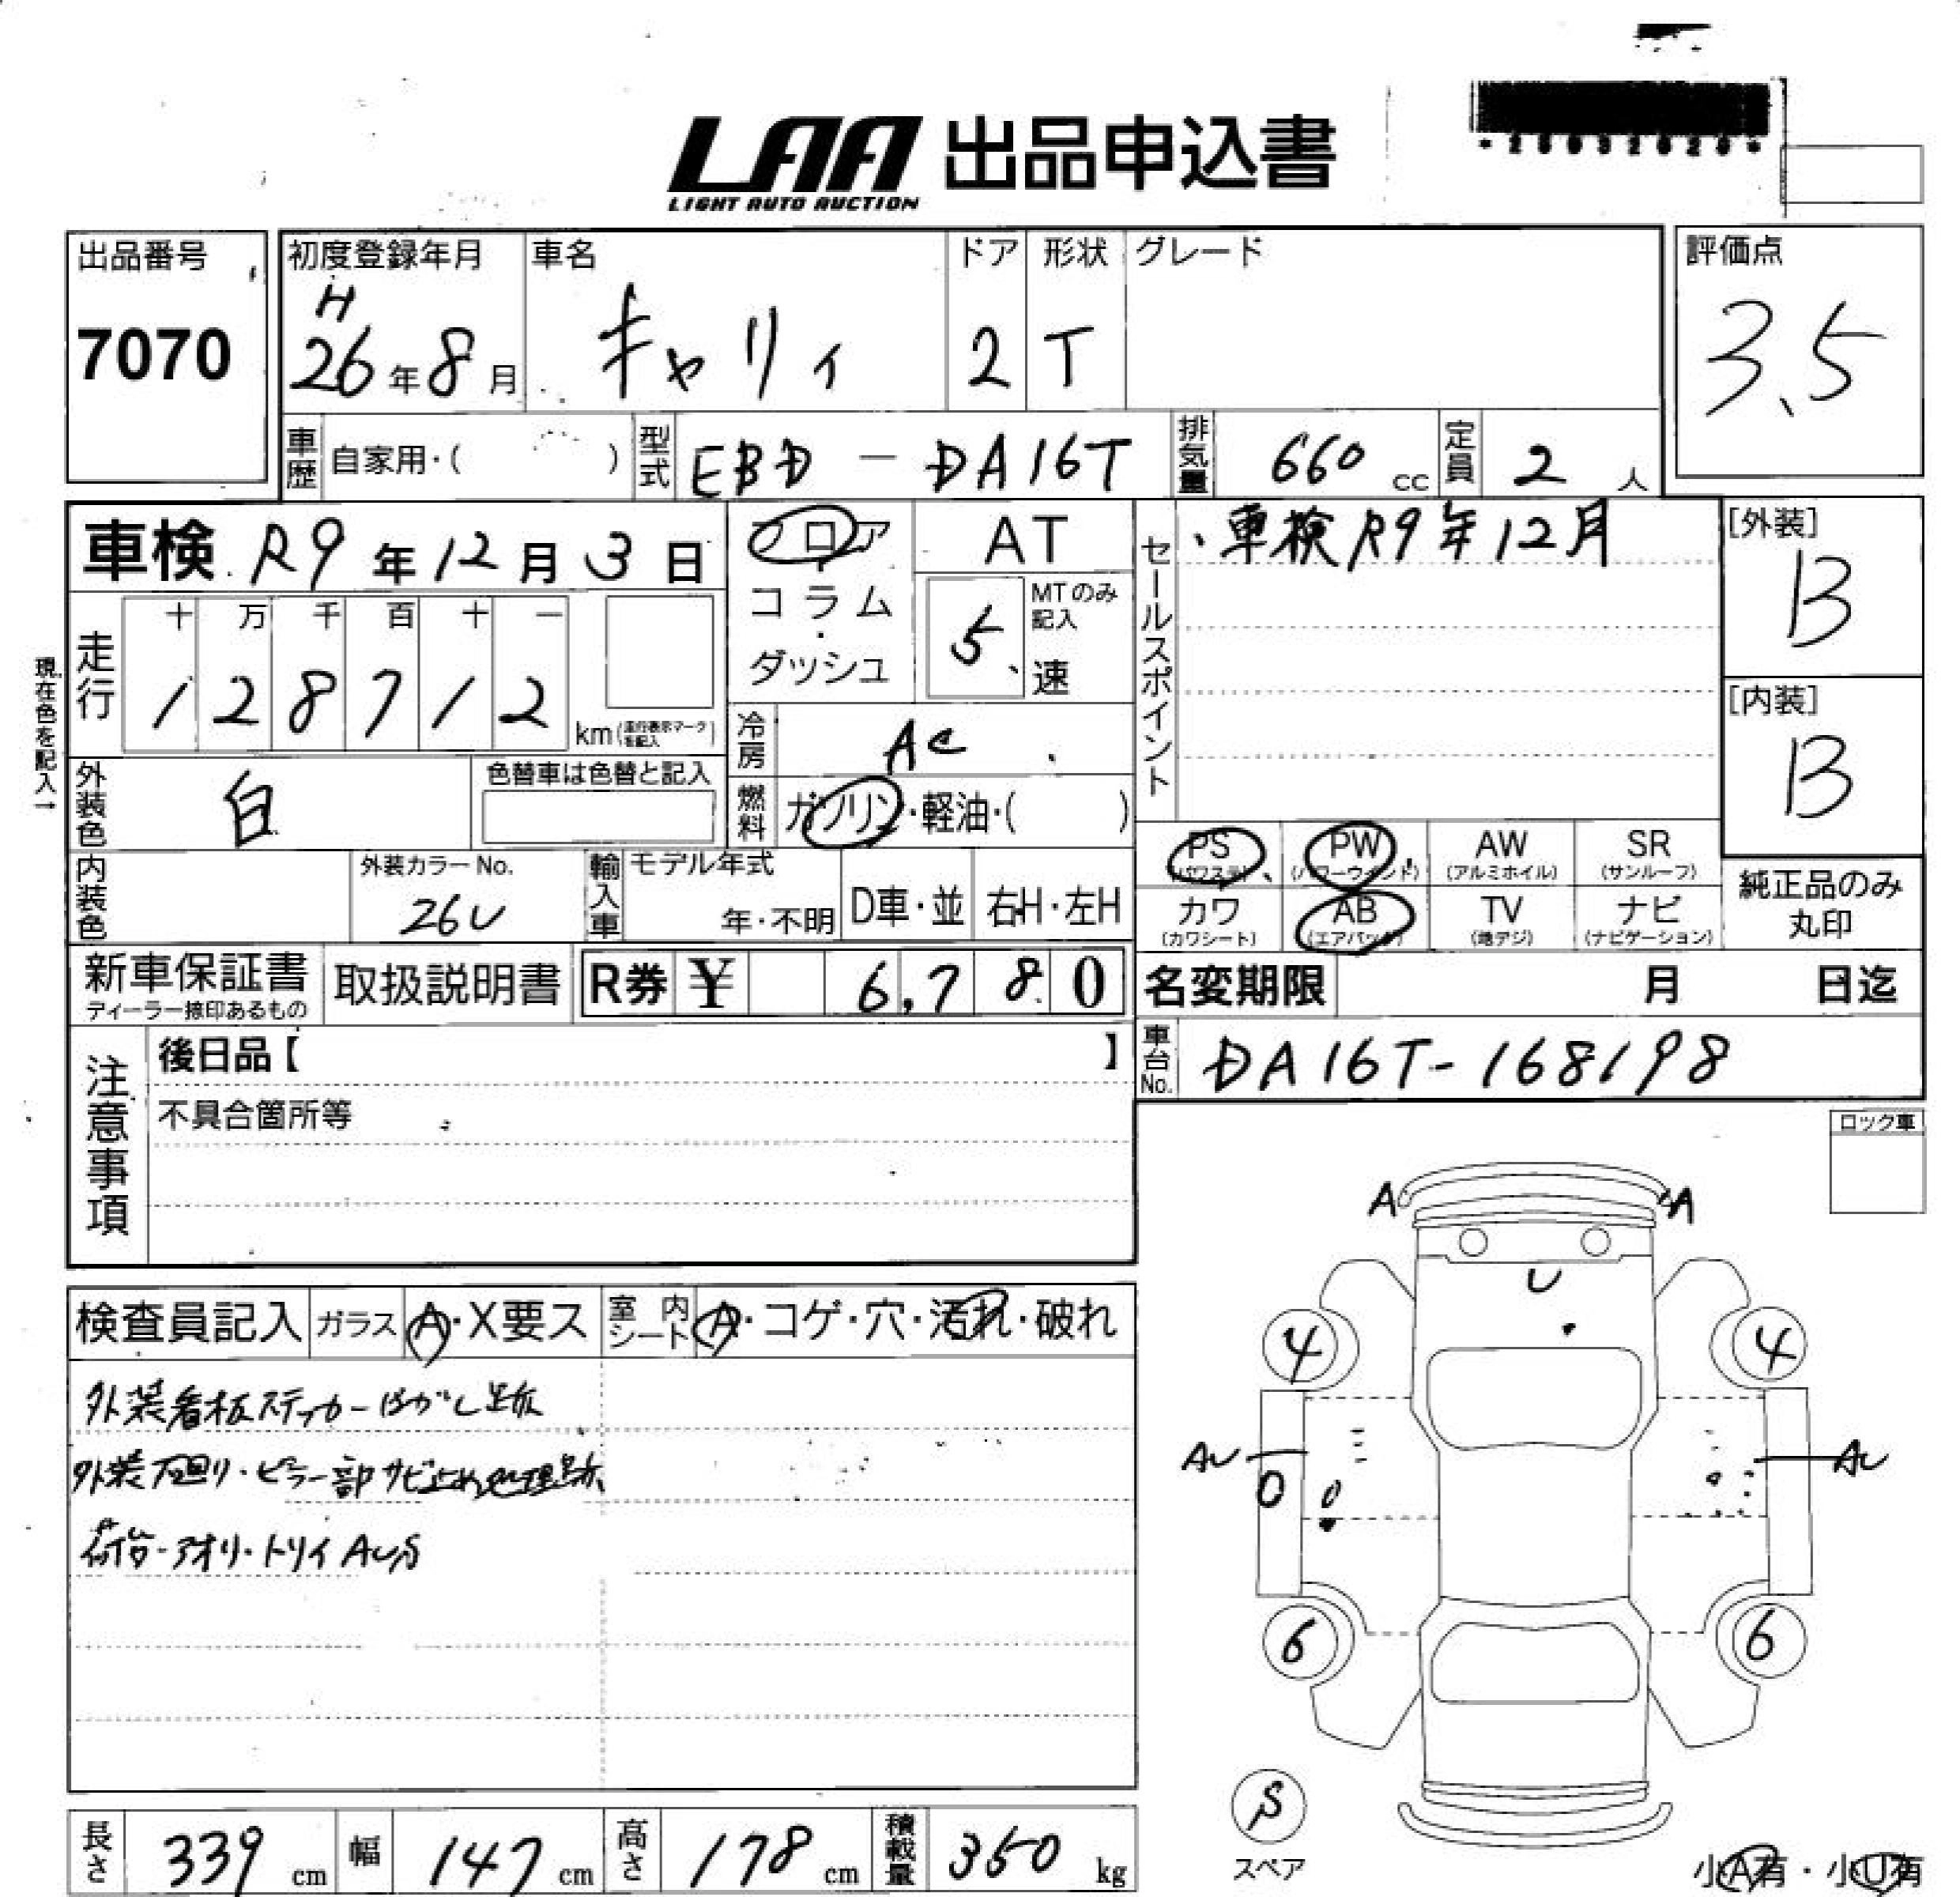 LAA 出品申込書
LIGHT AUTO AUCTION
出品番号
7070
初度登録年月
H
26年8月
車名
キャリィ
ドア
2
形状
T
グレード
評価点
3.5
車歴 自家用・( )
型式 EBD - DA16T
排気量 660 cc
定員 2 人
車検 R9年12月3日
フロア
コラム
・
ダッシュ
AT
MTのみ記入
5 速
セールスポイント
・車検R9年12月
[外装]
B
[内装]
B
現在色を記入→
走行
十 万 千 百 十 一
1 2 8 7 1 2
km(走行表示マークを記入)
冷房 AC
外装色 白
色替車は色替と記入
燃料 ガソリン・軽油・( )
内装色
外装カラーNo.
26U
輸入車
モデル年式
年・不明
D車・並
右H・左H
PS
(パワステ)
PW
(パワーウインド)
AW
(アルミホイル)
SR
(サンルーフ)
カワ
(カワシート)
AB
(エアバック)
TV
(地デジ)
ナビ
(ナビゲーション)
純正品のみ
丸印
新車保証書
ディーラー捺印あるもの
取扱説明書
R券 ¥ 6,780
名変期限 月 日迄
車台No. DA16T-168198
注意事項
後日品【 】
不具合箇所等
ロック車
検査員記入
ガラス A・X要ス
室内シート A・コゲ・穴・汚れ・破れ
外装看板ステッカーはがし跡
外装下廻り・ピラー部サビ止め処理跡
荷台・アオリ・トリイ AUS
A A
U
4 4
AU AU
O
6 6
S
スペア
小A有・小U有
長さ 339 cm
幅 147 cm
高さ 178 cm
積載量 350 kg